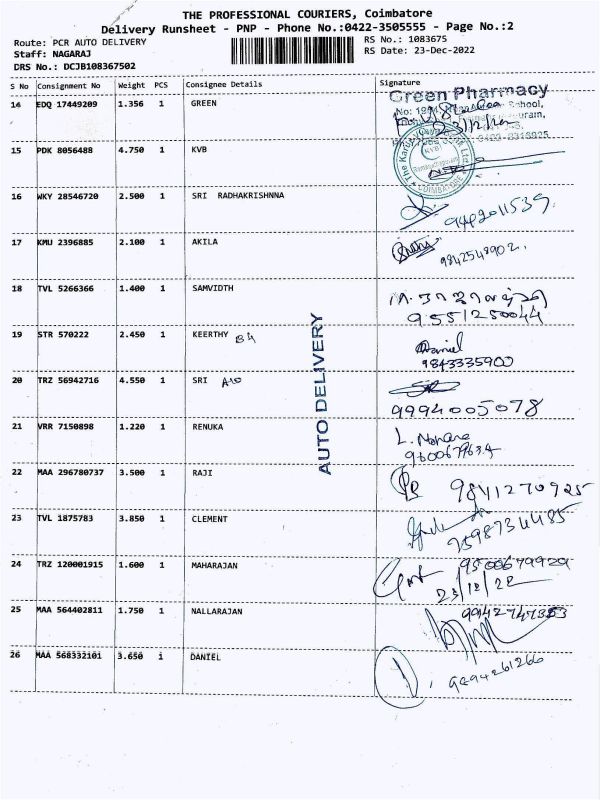 THE PROFESSIONAL COURIERS, Coimbatore
Delivery Runsheet - PNP - Phone No.:0422-3505555 - Page No.:2
Route: PCR AUTO DELIVERY
RS No.: 1083675
Staff: NAGARAJ
RS Date: 23-Dec-2022
DRS No.: DCJB108367502
S No Consignment No Weight PCS Consignee Details Signature
14 EDQ 17449209 1.356 1 GREEN
Green Pharmacy
15 PDK 8056488 4.750 1 KVB
KVB
COIMBATORE
16 WKY 28546720 2.500 1 SRI RADHAKRISHNNA
17 KMU 2396885 2.100 1 AKILA
9842548902.
18 TVL 5266366 1.400 1 SAMVIDTH
9551250044
19 STR 570222 2.450 1 KEERTHY B4
Daniel
9843335900
20 TRZ 56942716 4.550 1 SRI A10
9994005078
21 VRR 7150898 1.220 1 RENUKA
L. Mohana
22 MAA 296780737 3.500 1 RAJI
9841270925
23 TVL 1875783 3.850 1 CLEMENT
24 TRZ 120001915 1.600 1 MAHARAJAN
23/12/22
25 MAA 564402811 1.750 1 NALLARAJAN
26 MAA 568332101 3.650 1 DANIEL
AUTO DELIVERY